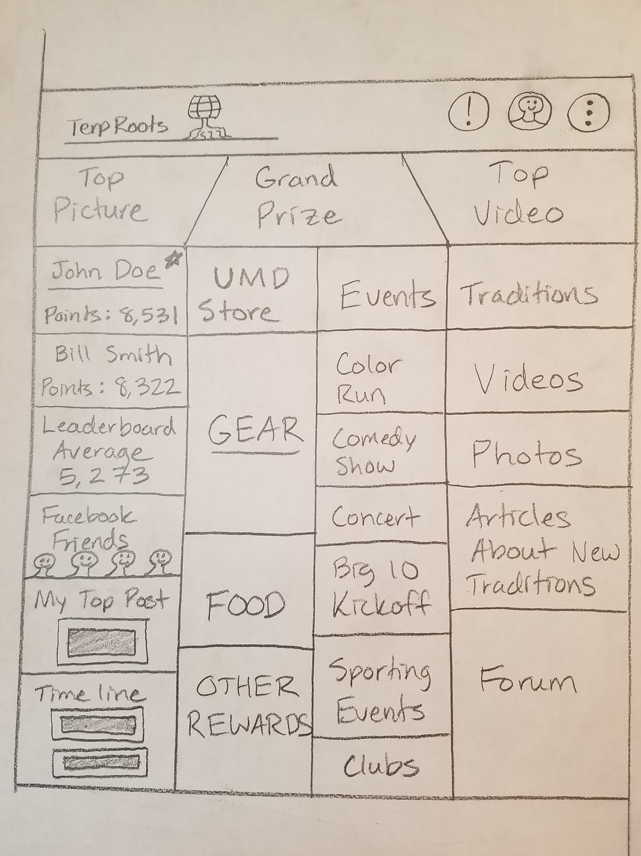 TerpRoots
!
Top
Picture
Grand
Prize
Top
Video
John Doe
Points: 8,531
Bill Smith
Points: 8,322
Leaderboard
Average
5,273
Facebook
Friends
My Top Post
Time line
UMD
Store
GEAR
FOOD
OTHER
REWARDS
Events
Color
Run
Comedy
Show
Concert
Big 10
Kickoff
Sporting
Events
Clubs
Traditions
Videos
Photos
Articles
About New
Traditions
Forum